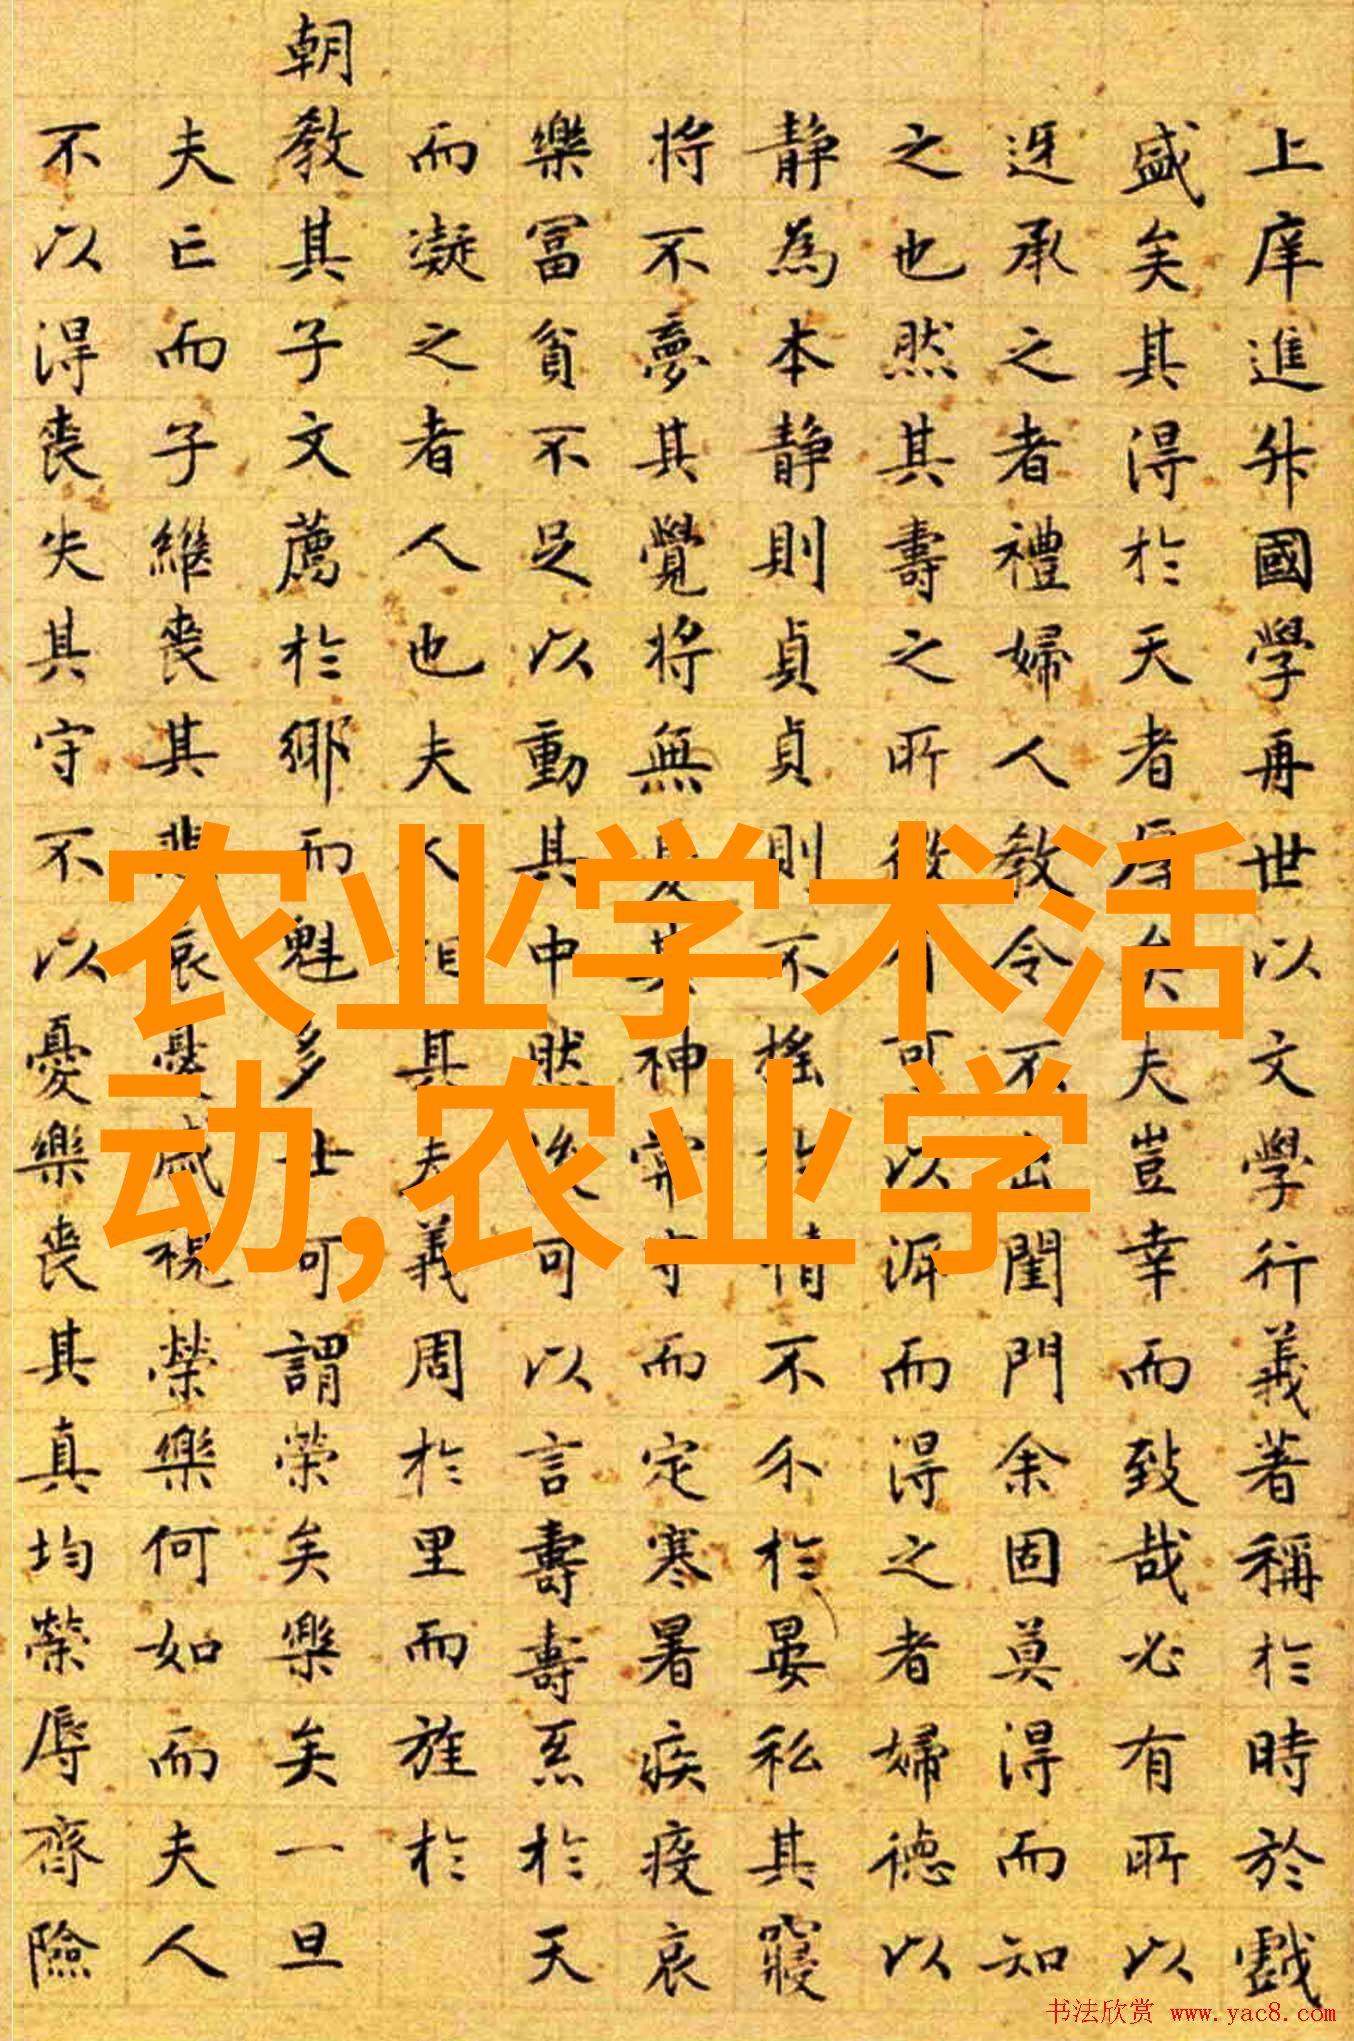 上庠進升國學再世以文學行義著稱於時於戲
盛矣其得於天者厚矣夫豈幸而致哉必有所以
迓承之者禮婦人教令不出閨門余固莫得而知
之也然其壽之所可以源而得之者婦德以
静為本静則貞貞則不搖於情不介於晏私其寢
將不夢其覺將無其神完守而定寒暑疾疫哀
樂富貧不足以動其中然後可以言壽壽系於天
而凝之者人也夫人相其夫義周於里而旌於
朝教其子文薦於鄉而魁多士可謂荣矣樂矣一旦
夫亡而子繼喪其悲哀憂戚視榮樂何如而夫人
不以得喪失其守不以憂樂喪其真均榮辱齊險
农业学术活
动,农业学
书法欣赏 www.yac8.com